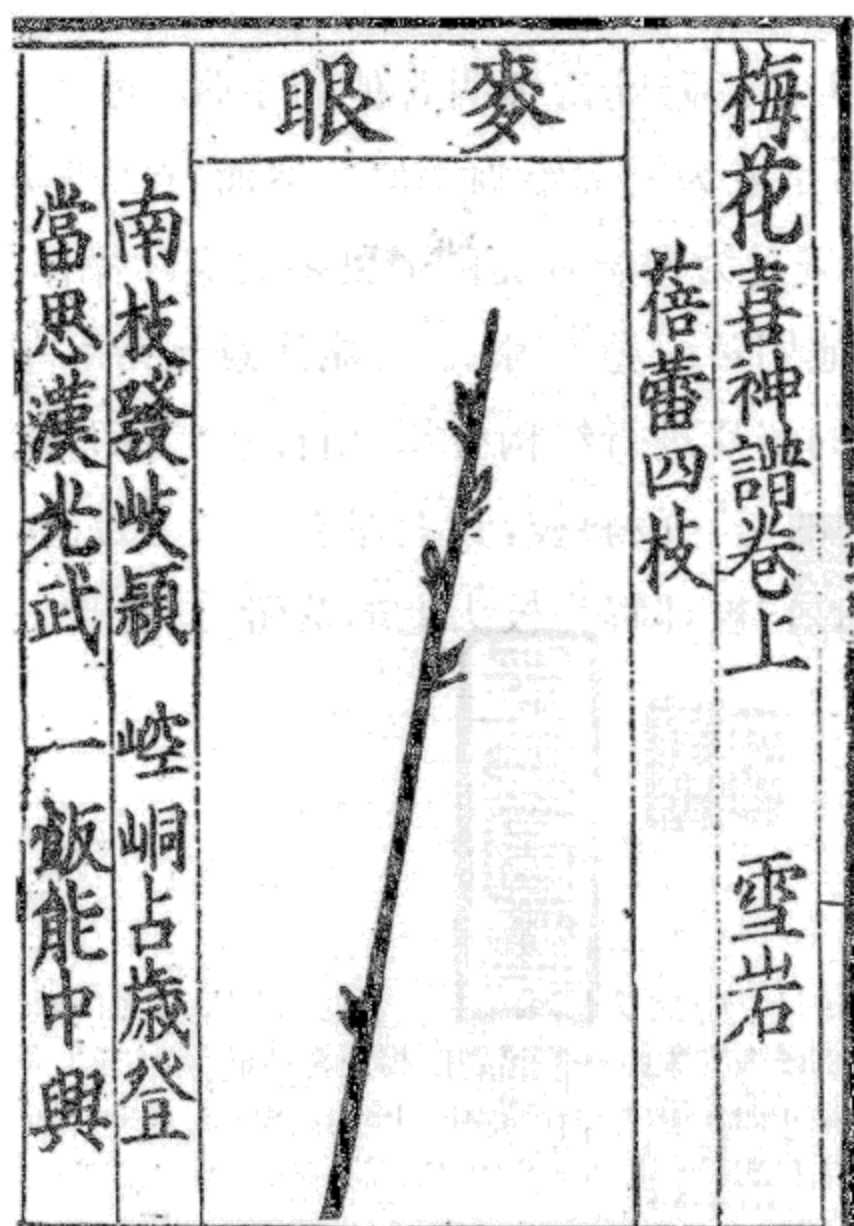 梅花喜神譜卷上　雪岩
蓓蕾四枝
麥眼
南枝發岐穎　崆峒占歲登
當思漢光武　一飯能中興